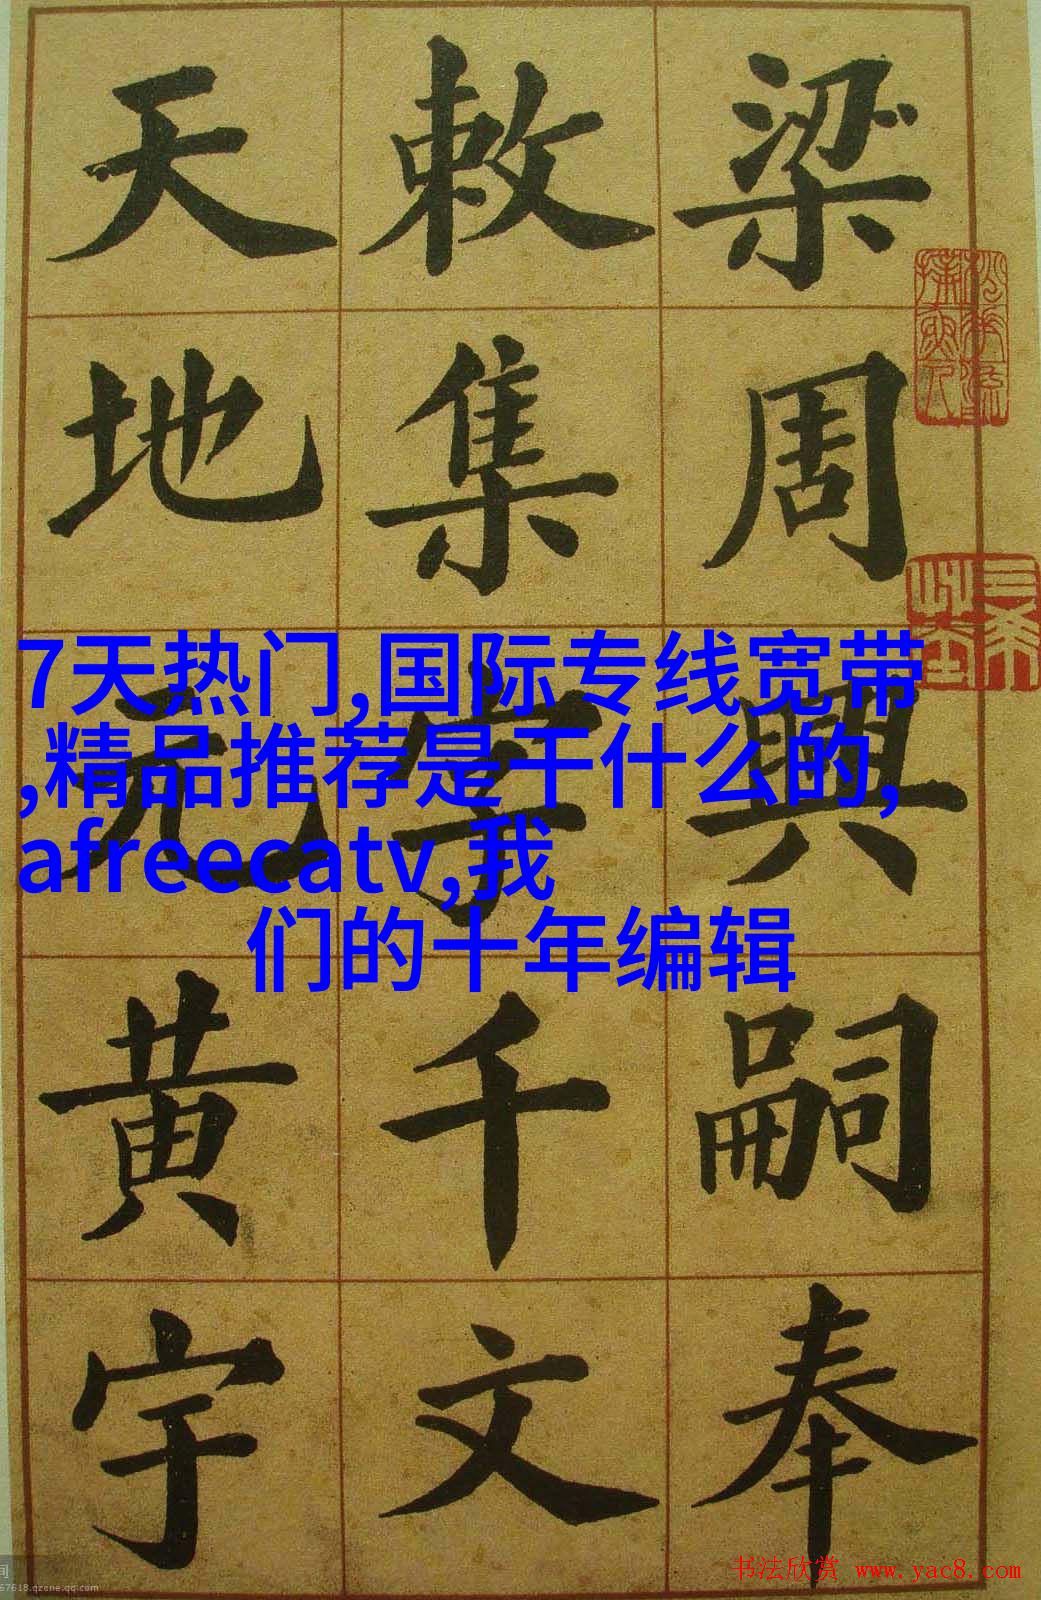 梁周興嗣奉
敕集字千文
天地元黄宇
7天热门,国际专线宽带
,精品推荐是干什么的,
afreecatv,我
们的十年编辑
书法欣赏 www.yac8.com
间
67618.qzone.qq.com